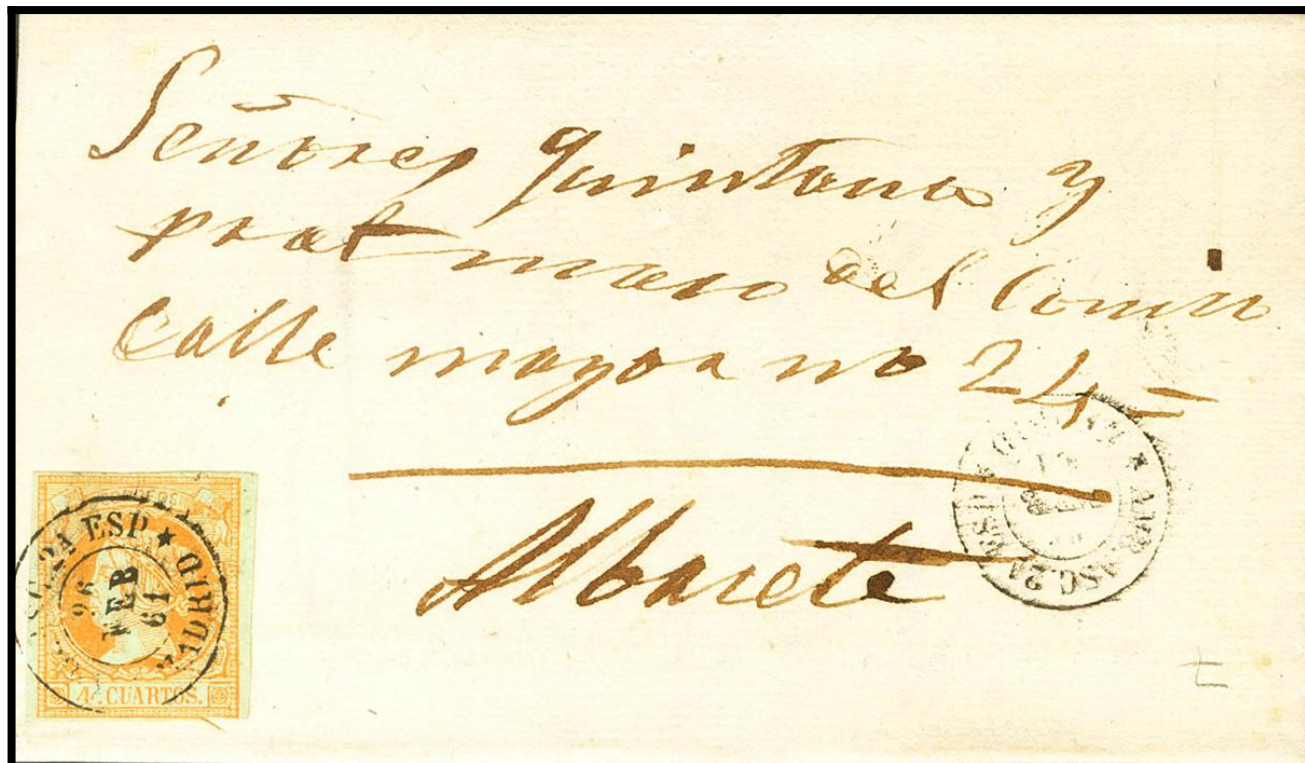 Señores Quintana y
prat maso del Comun
Calle mayor no 24=
Albacete
ESP ★ MADRID
26
FEB
61
4. CUARTOS.
★ AMB. ASC. 2A